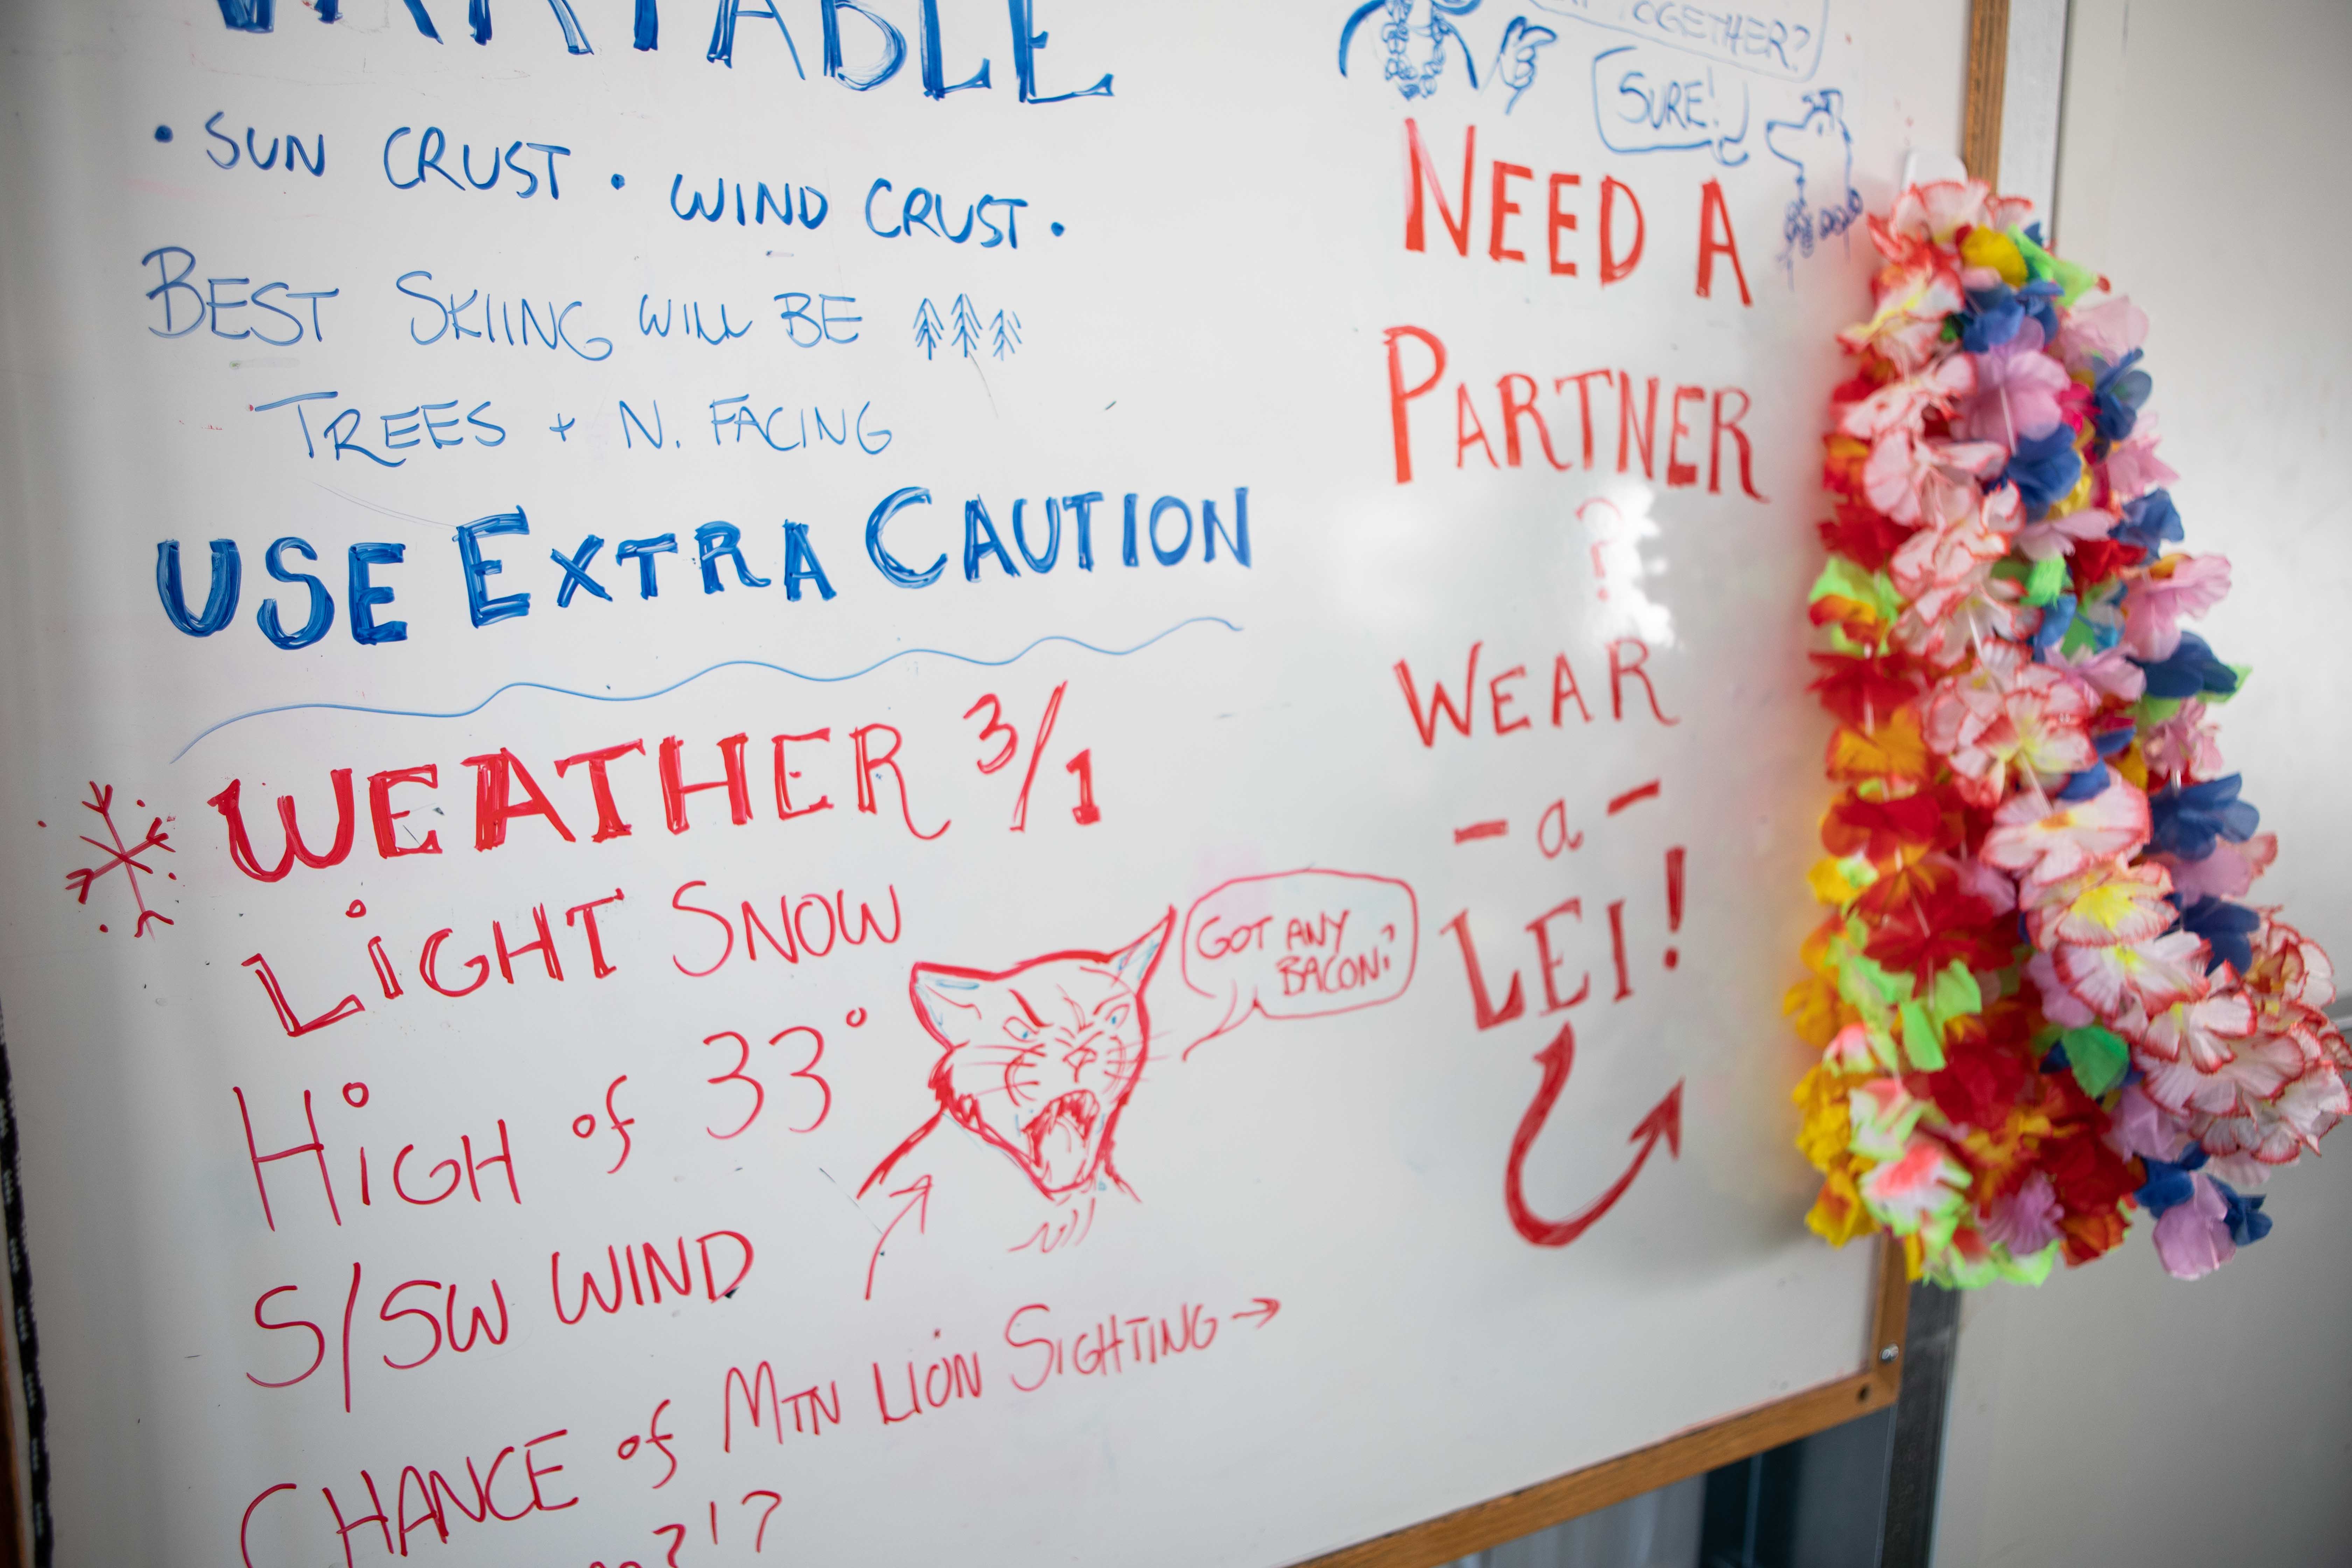 VARIABLE
• SUN CRUST • WIND CRUST •
BEST SKIING WILL BE
TREES + N. FACING
USE EXTRA CAUTION
WEATHER 3/1
LIGHT SNOW
HIGH of 33°
S/SW WIND
CHANCE of MTN LION SIGHTING →
GOT ANY
BACON?
TOGETHER?
SURE!
NEED A
PARTNER
?
WEAR
- a -
LEI!